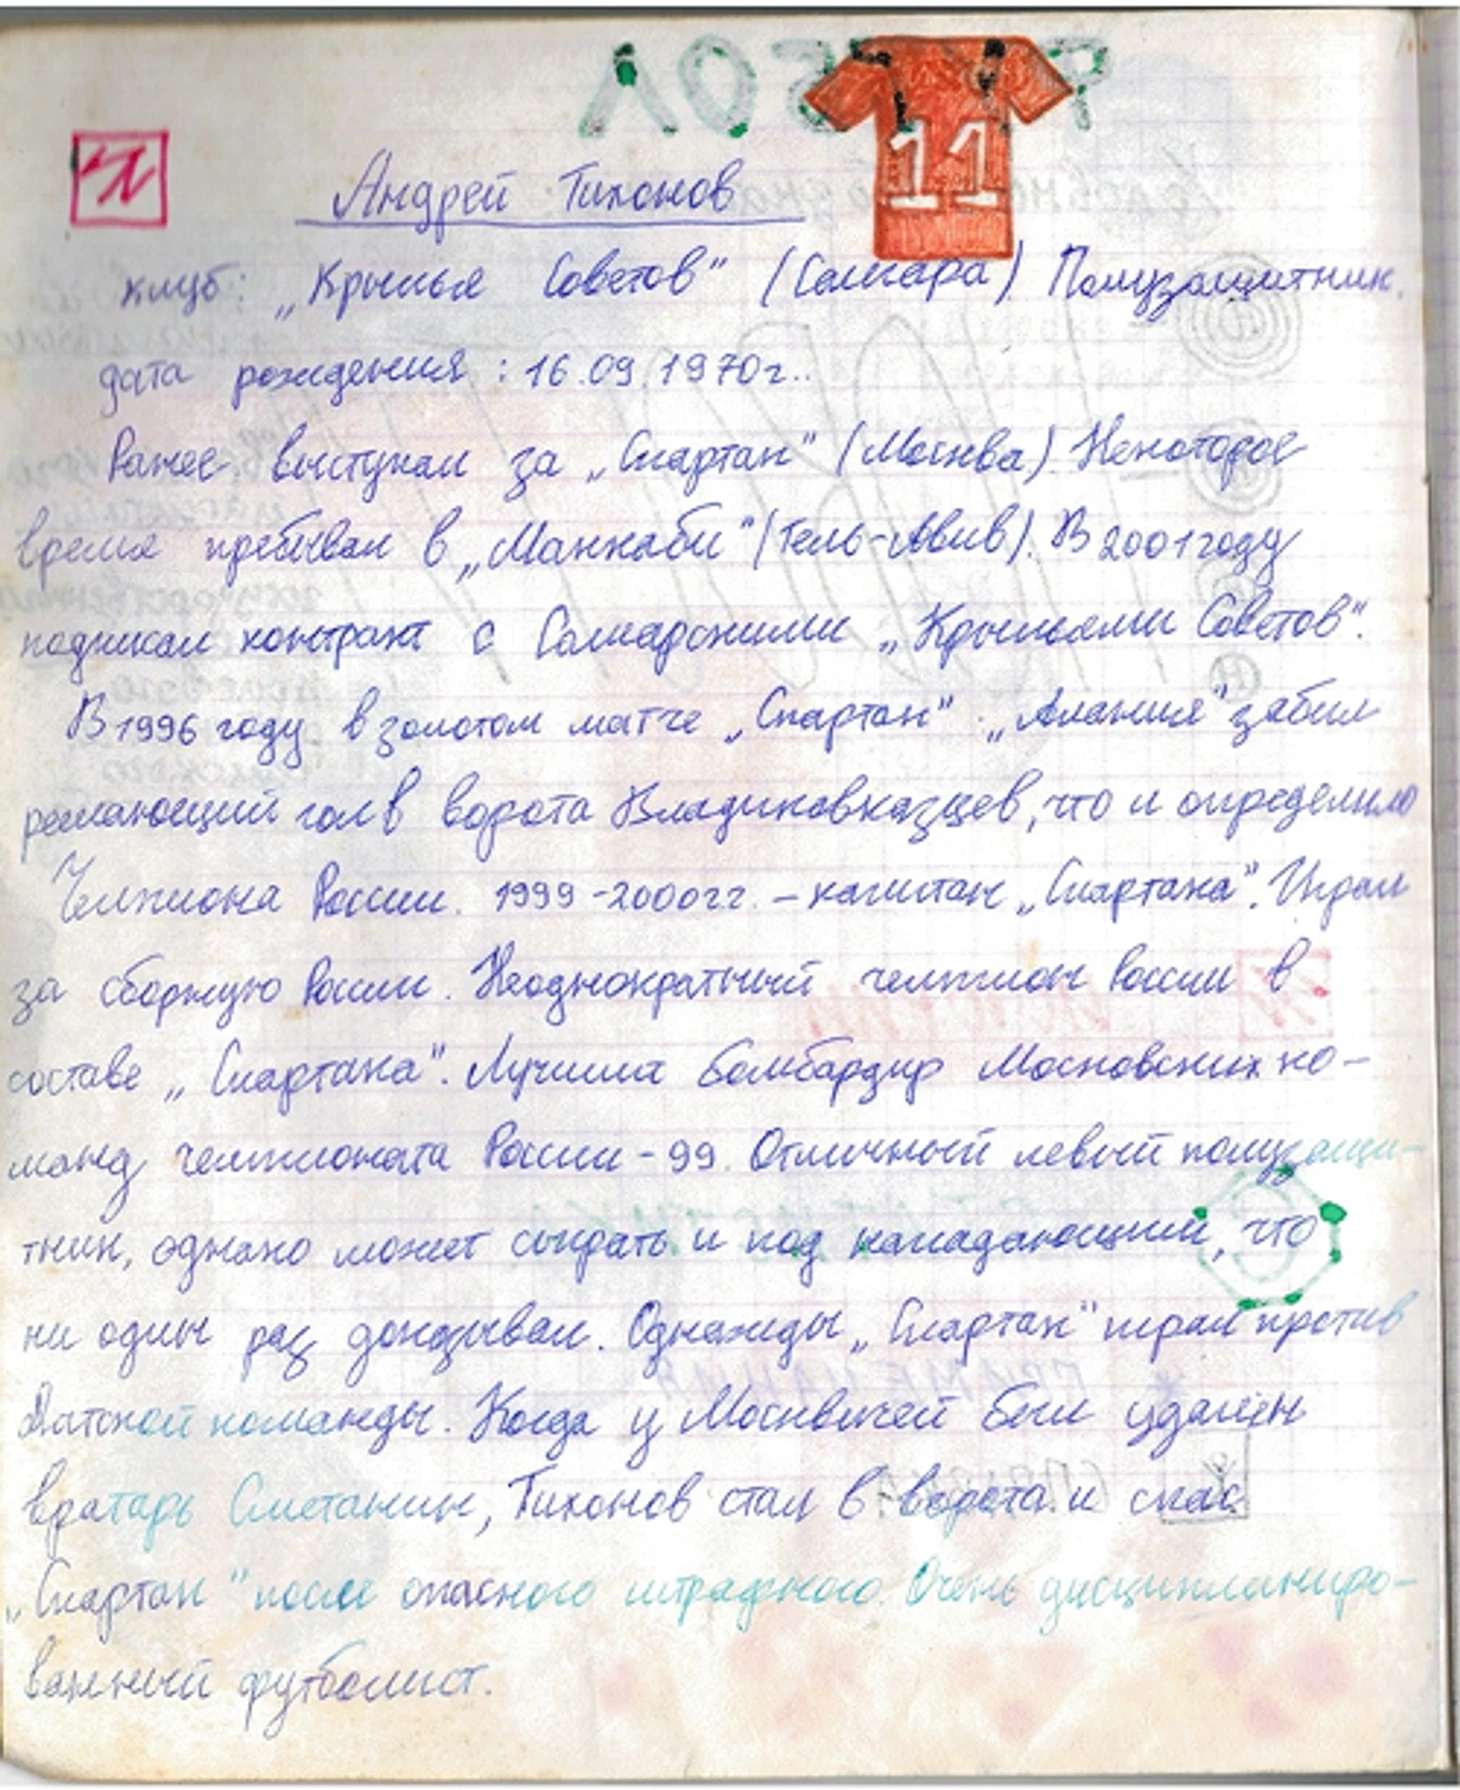 11
Андрей Тихонов
клуб: „Крылья Советов" (Самара). Полузащитник.
дата рождения: 16.09.1970г..
Ранее выступал за „Спартак" (Москва). Некоторое
время пребывал в „Маккаби" (Тель-Авив). В 2001 году
подписал контракт с Самарскими „Крыльями Советов".
В 1996 году в золотом матче „Спартак" - „Алания" забил
решающий гол в ворота Владикавказцев, что и определило
Чемпиона России. 1999-2000гг. - капитан „Спартака". Играл
за сборную России. Неоднократный чемпион России в
составе „Спартака". Лучший бомбардир Московских ко-
манд чемпионата России-99. Отличный левый полузащи-
тник, однако может сыграть и под нападающим, что
ни один раз доказывал. Однажды „Спартак" играл против
Датской команды. Когда у Москвичей был удалён
вратарь Сметанин, Тихонов стал в ворота и спас
„Спартак" после опасного штрафного. Очень дисциплиниро-
ванный футболист.